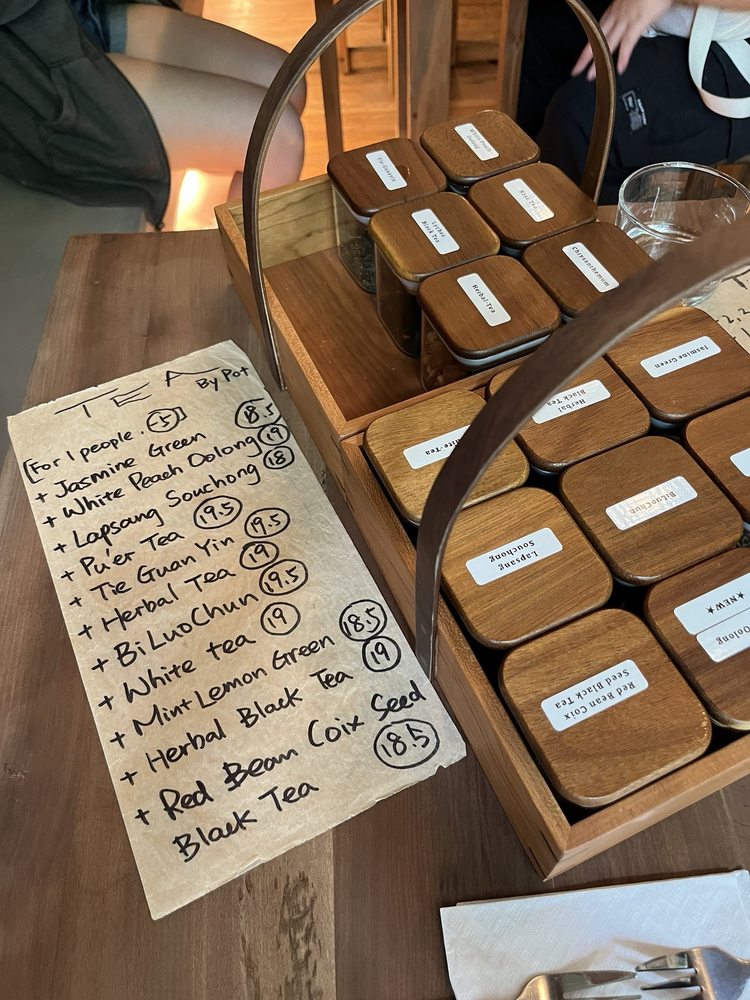 TEA By Pot
[For 1 people. -5]
+ Jasmine Green 18.5
+ White Peach Oolong 19
+ Lapsang Souchong 18
+ Pu'er Tea 19.5
+ Tie Guan Yin 19.5
+ Herbal Tea 19
+ BiLuoChun 19.5
+ White tea 19
+ Mint Lemon Green 18.5
+ Herbal Black Tea 19
+ Red Bean Coix Seed
Black Tea 18.5
White Peach
Oolong
Tie Guanyin
Lychee
Black Tea
Herbal-Tea
Chrysanthemum
Jasmine Green
Herbal
Black Tea
BiLuoChun
Lapsang
Souchong
★NEW★
Oolong
Red Bean Coix
Seed Black Tea